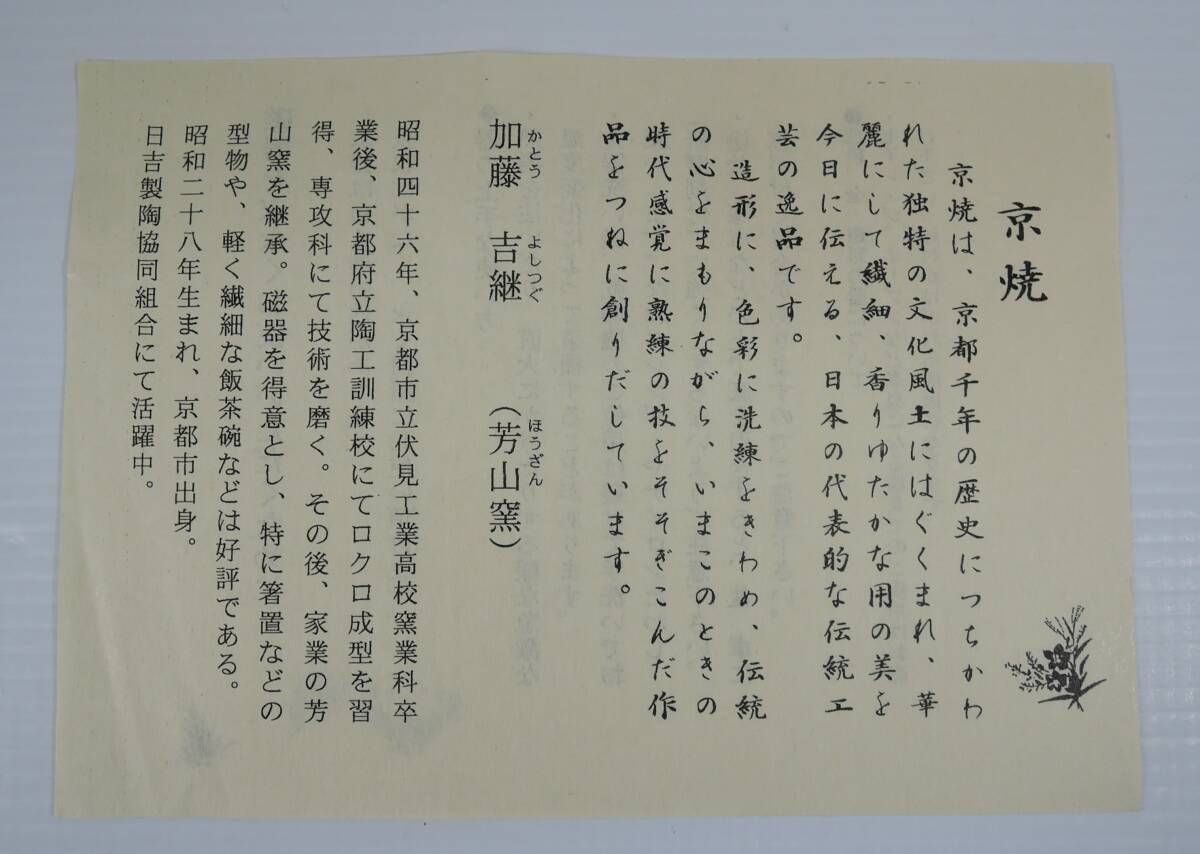 京焼
京焼は、京都千年の歴史につちかわ
れた独特の文化風土にはぐくまれ、華
麗にして繊細、香りゆたかな用の美を
今日に伝える、日本の代表的な伝統工
芸の逸品です。
造形に、色彩に洗練をきわめ、伝統
の心をまもりながら、いまこのときの
時代感覚に熟練の技をそそぎこんだ作
品をつねに創りだしています。
加藤 吉継 (芳山窯)
かとう よしつぐ ほうざん
昭和四十六年、京都市立伏見工業高校窯業科卒
業後、京都府立陶工訓練校にてロクロ成型を習
得、専攻科にて技術を磨く。その後、家業の芳
山窯を継承。磁器を得意とし、特に箸置などの
型物や、軽く繊細な飯茶碗などは好評である。
昭和二十八年生まれ、京都市出身。
日吉製陶協同組合にて活躍中。